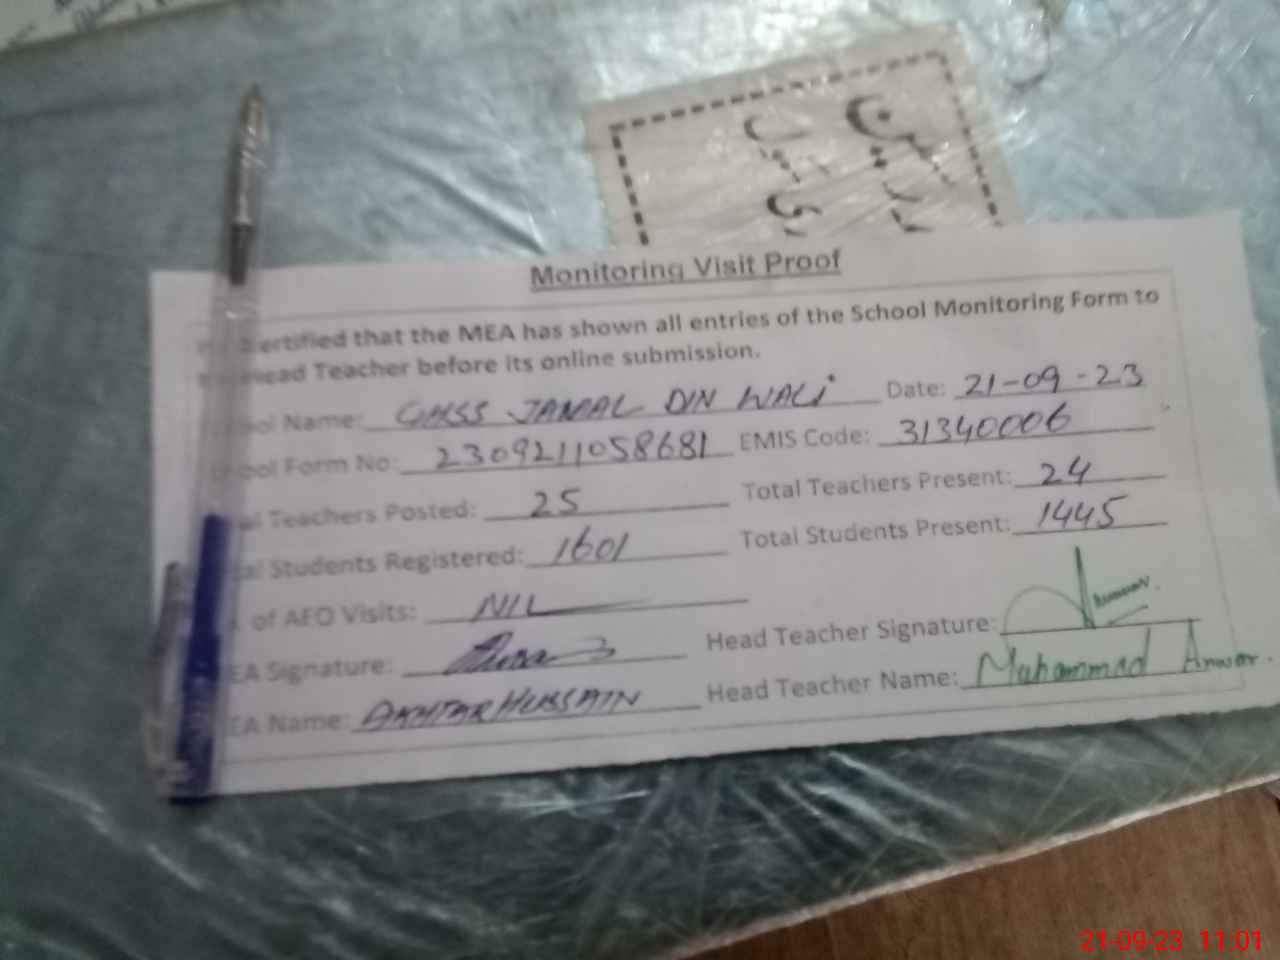 Monitoring Visit Proof
ertified that the MEA has shown all entries of the School Monitoring Form to
Head Teacher before its online submission.
ool Name: GHSS JAMAL DIN WALI Date: 21-09-23
ool Form No: 2309211058681 EMIS Code: 31340006
al Teachers Posted: 25 Total Teachers Present: 24
al Students Registered: 1601 Total Students Present: 1445
. of AEO Visits: NIL
EA Signature: Head Teacher Signature:
EA Name: AKHTAR HUSSAIN Head Teacher Name: Muhammad Anwar.
21-09-23 11:01